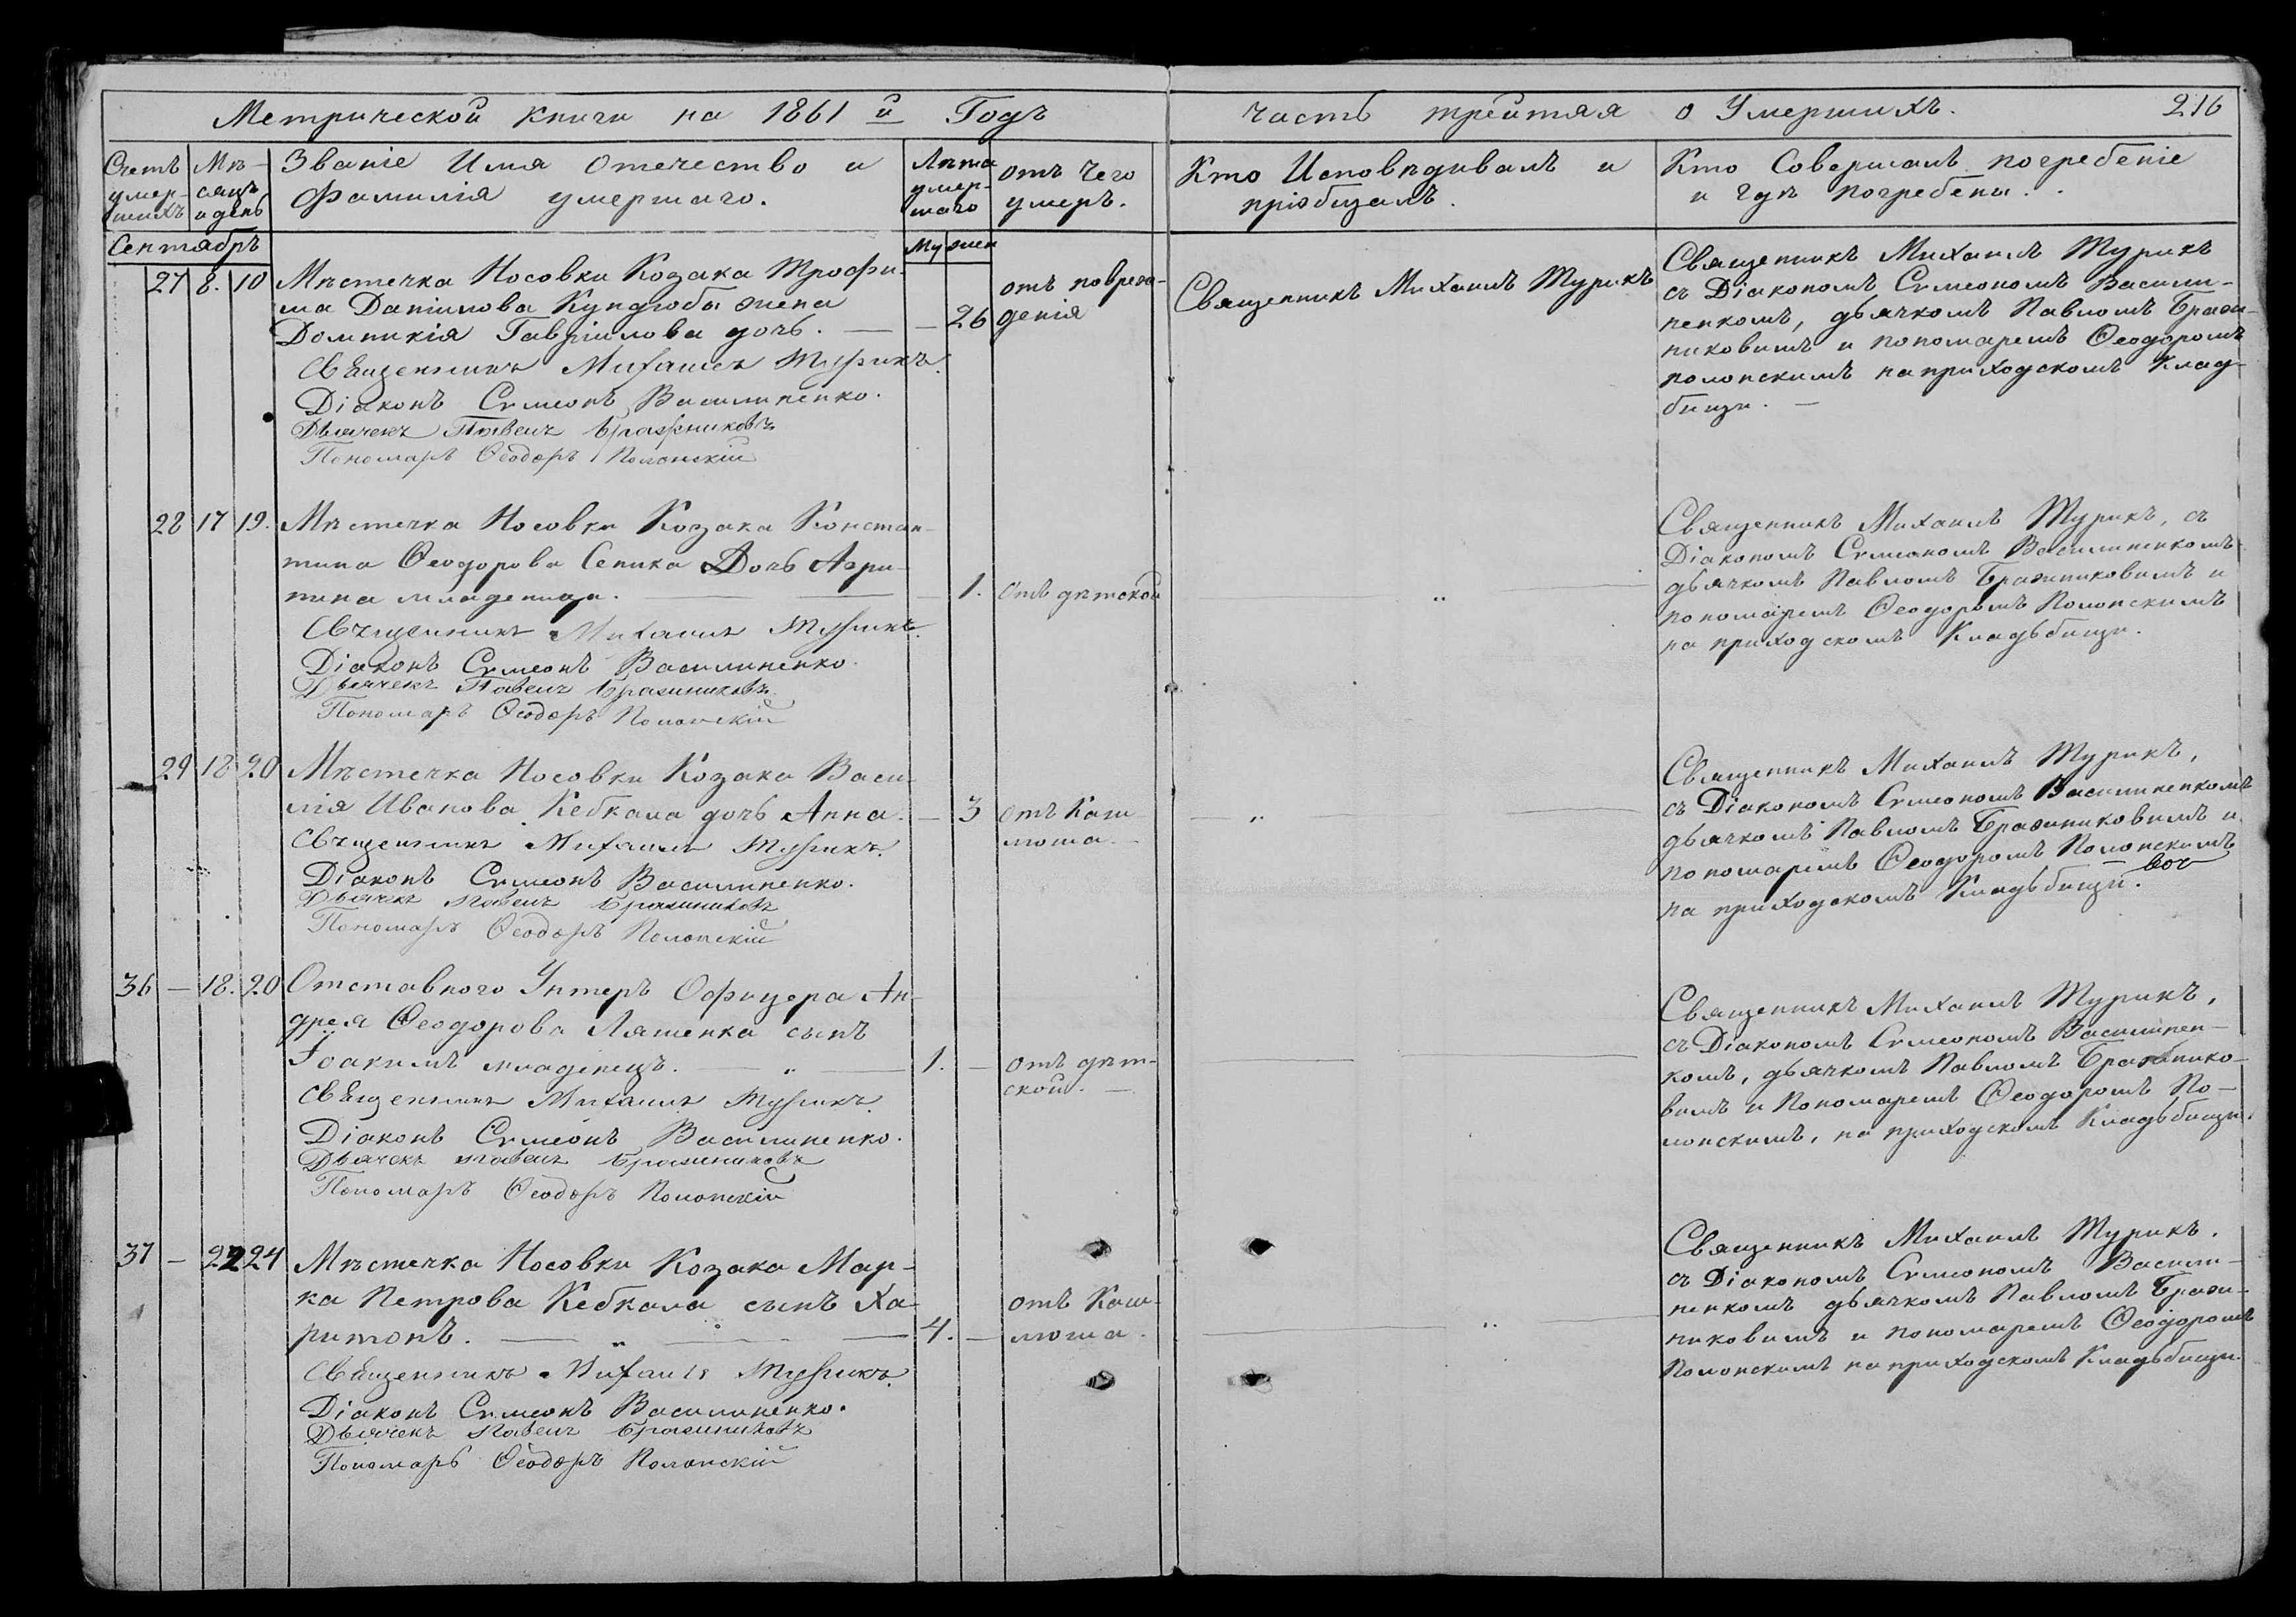 Метрической книги на 1861 й Годъ
часть трейтяя о Умершихъ. 216
Счетъ умер-шихъ
Мѣ-сяцъ и день
Званіе Имя Отечество и
Фамилія умершаго.
Лѣта умер-шаго
отъ чего
умеръ.
Кто Исповѣдивалъ и
пріобщалъ.
Кто Совершалъ погребеніе
и гдѣ погребены.
Сентябръ
Му жен
27 8. 10 Мѣстечка Носовки Козака Трофи-
ма Даніилова Кундюбы жена
Домникія Гавріилова дочь. — — 26
отъ повреж-
денія
Священникъ Михаилъ Турикъ.
Діаконъ Сѵмеонъ Василиненко.
Дьячекъ Павелъ Бражниковъ
Пономарь Ѳеодоръ Полонскій
Священникъ Михаилъ Турикъ
Священникъ Михаилъ Турикъ
съ Діакономъ Сѵмеономъ Васили-
ненкомъ, дьячкомъ Павломъ Бражни-
никовимъ и пономаремъ Ѳеодоромъ
полонскимъ на приходскомъ Клад-
бищи. —
28 17 19. Мѣстечка Носовки Козака Констан-
тина Ѳеодорова Сепика Дочь Агри-
пина младеница. — — 1. Отъ дѣтской
Священникъ Михаилъ Турикъ.
Діаконъ Сѵмеонъ Василиненко.
Дьячекъ Павелъ Бражниковъ.
Пономарь Ѳеодоръ Полонскій
— „ —
Священникъ Михаилъ Турикъ, съ
Діакономъ Сѵмеономъ Василиненкомъ
дьячкомъ Павломъ Бражниковимъ и
пономаремъ Ѳеодоромъ Полонскимъ
на приходскомъ Кладьбищи.
29 18 20 Мѣстечка Носовки Козака Васи-
лія Иванова Кебкала дочь Анна. — 3 отъ Каш
люша. —
Священникъ Михаилъ Турикъ.
Діаконъ Сѵмеонъ Василиненко.
Дьячекъ Павелъ Бражниковъ
Пономарь Ѳеодоръ Полонскій
— „ —
Священникъ Михаилъ Турикъ,
съ Діакономъ Сѵмеономъ Василиненкомъ
дьячкомъ Павломъ Бражниковимъ и
пономаремъ Ѳеодоромъ Полонскимъ
на приходскомъ Кладьбищи.
36 — 18. 20 Отставного Унтеръ Офицера Ан-
дрея Ѳеодорова Ляшенка сынъ
Іоакимъ младенецъ. — „ — 1. — отъ дѣт-
ской. —
Священникъ Михаилъ Турикъ.
Діаконъ Сѵмеонъ Василиненко.
Дьячекъ Павелъ Бражниковъ
Пономарь Ѳеодоръ Полонскій
Священникъ Михаилъ Турикъ,
съ Діакономъ Сѵмеономъ Василинен-
комъ, дьячкомъ Павломъ Бражнико-
вимъ и Пономаремъ Ѳеодоромъ По-
лонскимъ, на приходскомъ Кладьбищи.
37 — 22 24 Мѣстечка Носовки Козака Мар-
ка Петрова Кебкала сынъ Ха-
ритонъ. — „ — 4. —
отъ Каш-
люша.
Священникъ Михаилъ Турикъ.
Діаконъ Сѵмеонъ Василиненко.
Дьячекъ Павелъ Бражниковъ
Пономарь Ѳеодоръ Полонскій
— „ —
Священникъ Михаилъ Турикъ.
съ Діакономъ Сѵмеономъ Васили-
ненкомъ дьячкомъ Павломъ Бражи-
никовимъ и пономаремъ Ѳеодоромъ
Полонскимъ на приходскомъ Кладьбищи.